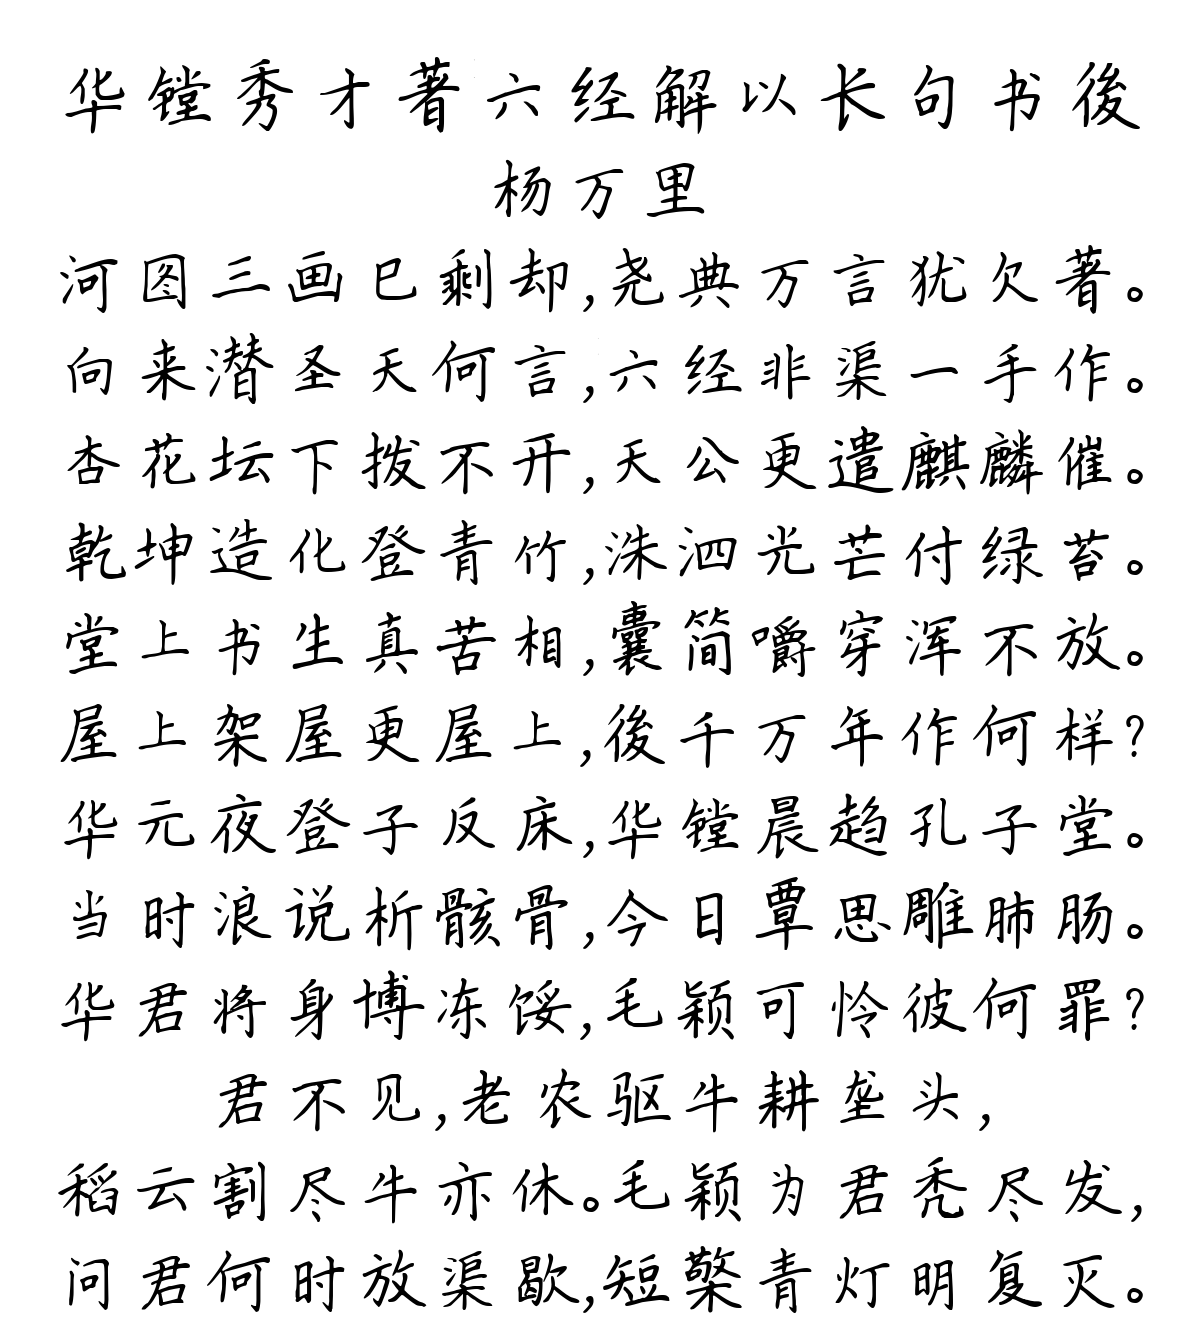 华镗秀才著六经解以长句书後
杨万里
河图三画巳剩却,尧典万言犹欠著。
向来潜圣天何言,六经非渠一手作。
杏花坛下拨不开,天公更遣麒麟催。
乾坤造化登青竹,洙泗光芒付绿苔。
堂上书生真苦相,囊简嚼穿浑不放。
屋上架屋更屋上,後千万年作何样?
华元夜登子反床,华镗晨趋孔子堂。
当时浪说析骸骨,今日覃思雕肺肠。
华君将身博冻馁,毛颖可怜彼何罪?
君不见,老农驱牛耕垄头,
稻云割尽牛亦休。毛颖为君秃尽发,
问君何时放渠歇,短檠青灯明复灭。